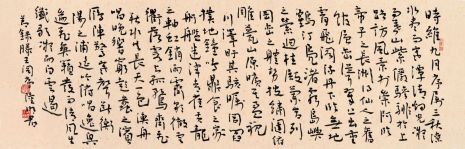 時維九月序屬三秋潦
水盡而寒潭清煙光凝
而暮山紫儼驂騑於上
路訪風景於崇阿臨
帝子之長洲得仙人之舊
館層巒聳翠上出重
霄飛閣流丹下臨無地
鶴汀鳧渚窮島嶼
之縈迴桂殿蘭宮列
岡巒之體勢披繡闥俯
雕甍山原曠其盈視
川澤盱其駭矚閭閻
撲地鐘鳴鼎食之家
舸艦迷津青雀黃龍
之軸虹銷雨霽彩徹雲
衢落霞與孤鶩齊飛
秋水共長天一色漁舟
唱晚響窮彭蠡之濱
雁陣驚寒聲斷衡陽
之浦遙吟俯暢逸興
遄飛爽籟發而清風生
纖歌凝而白雲遏
錄滕王閣序